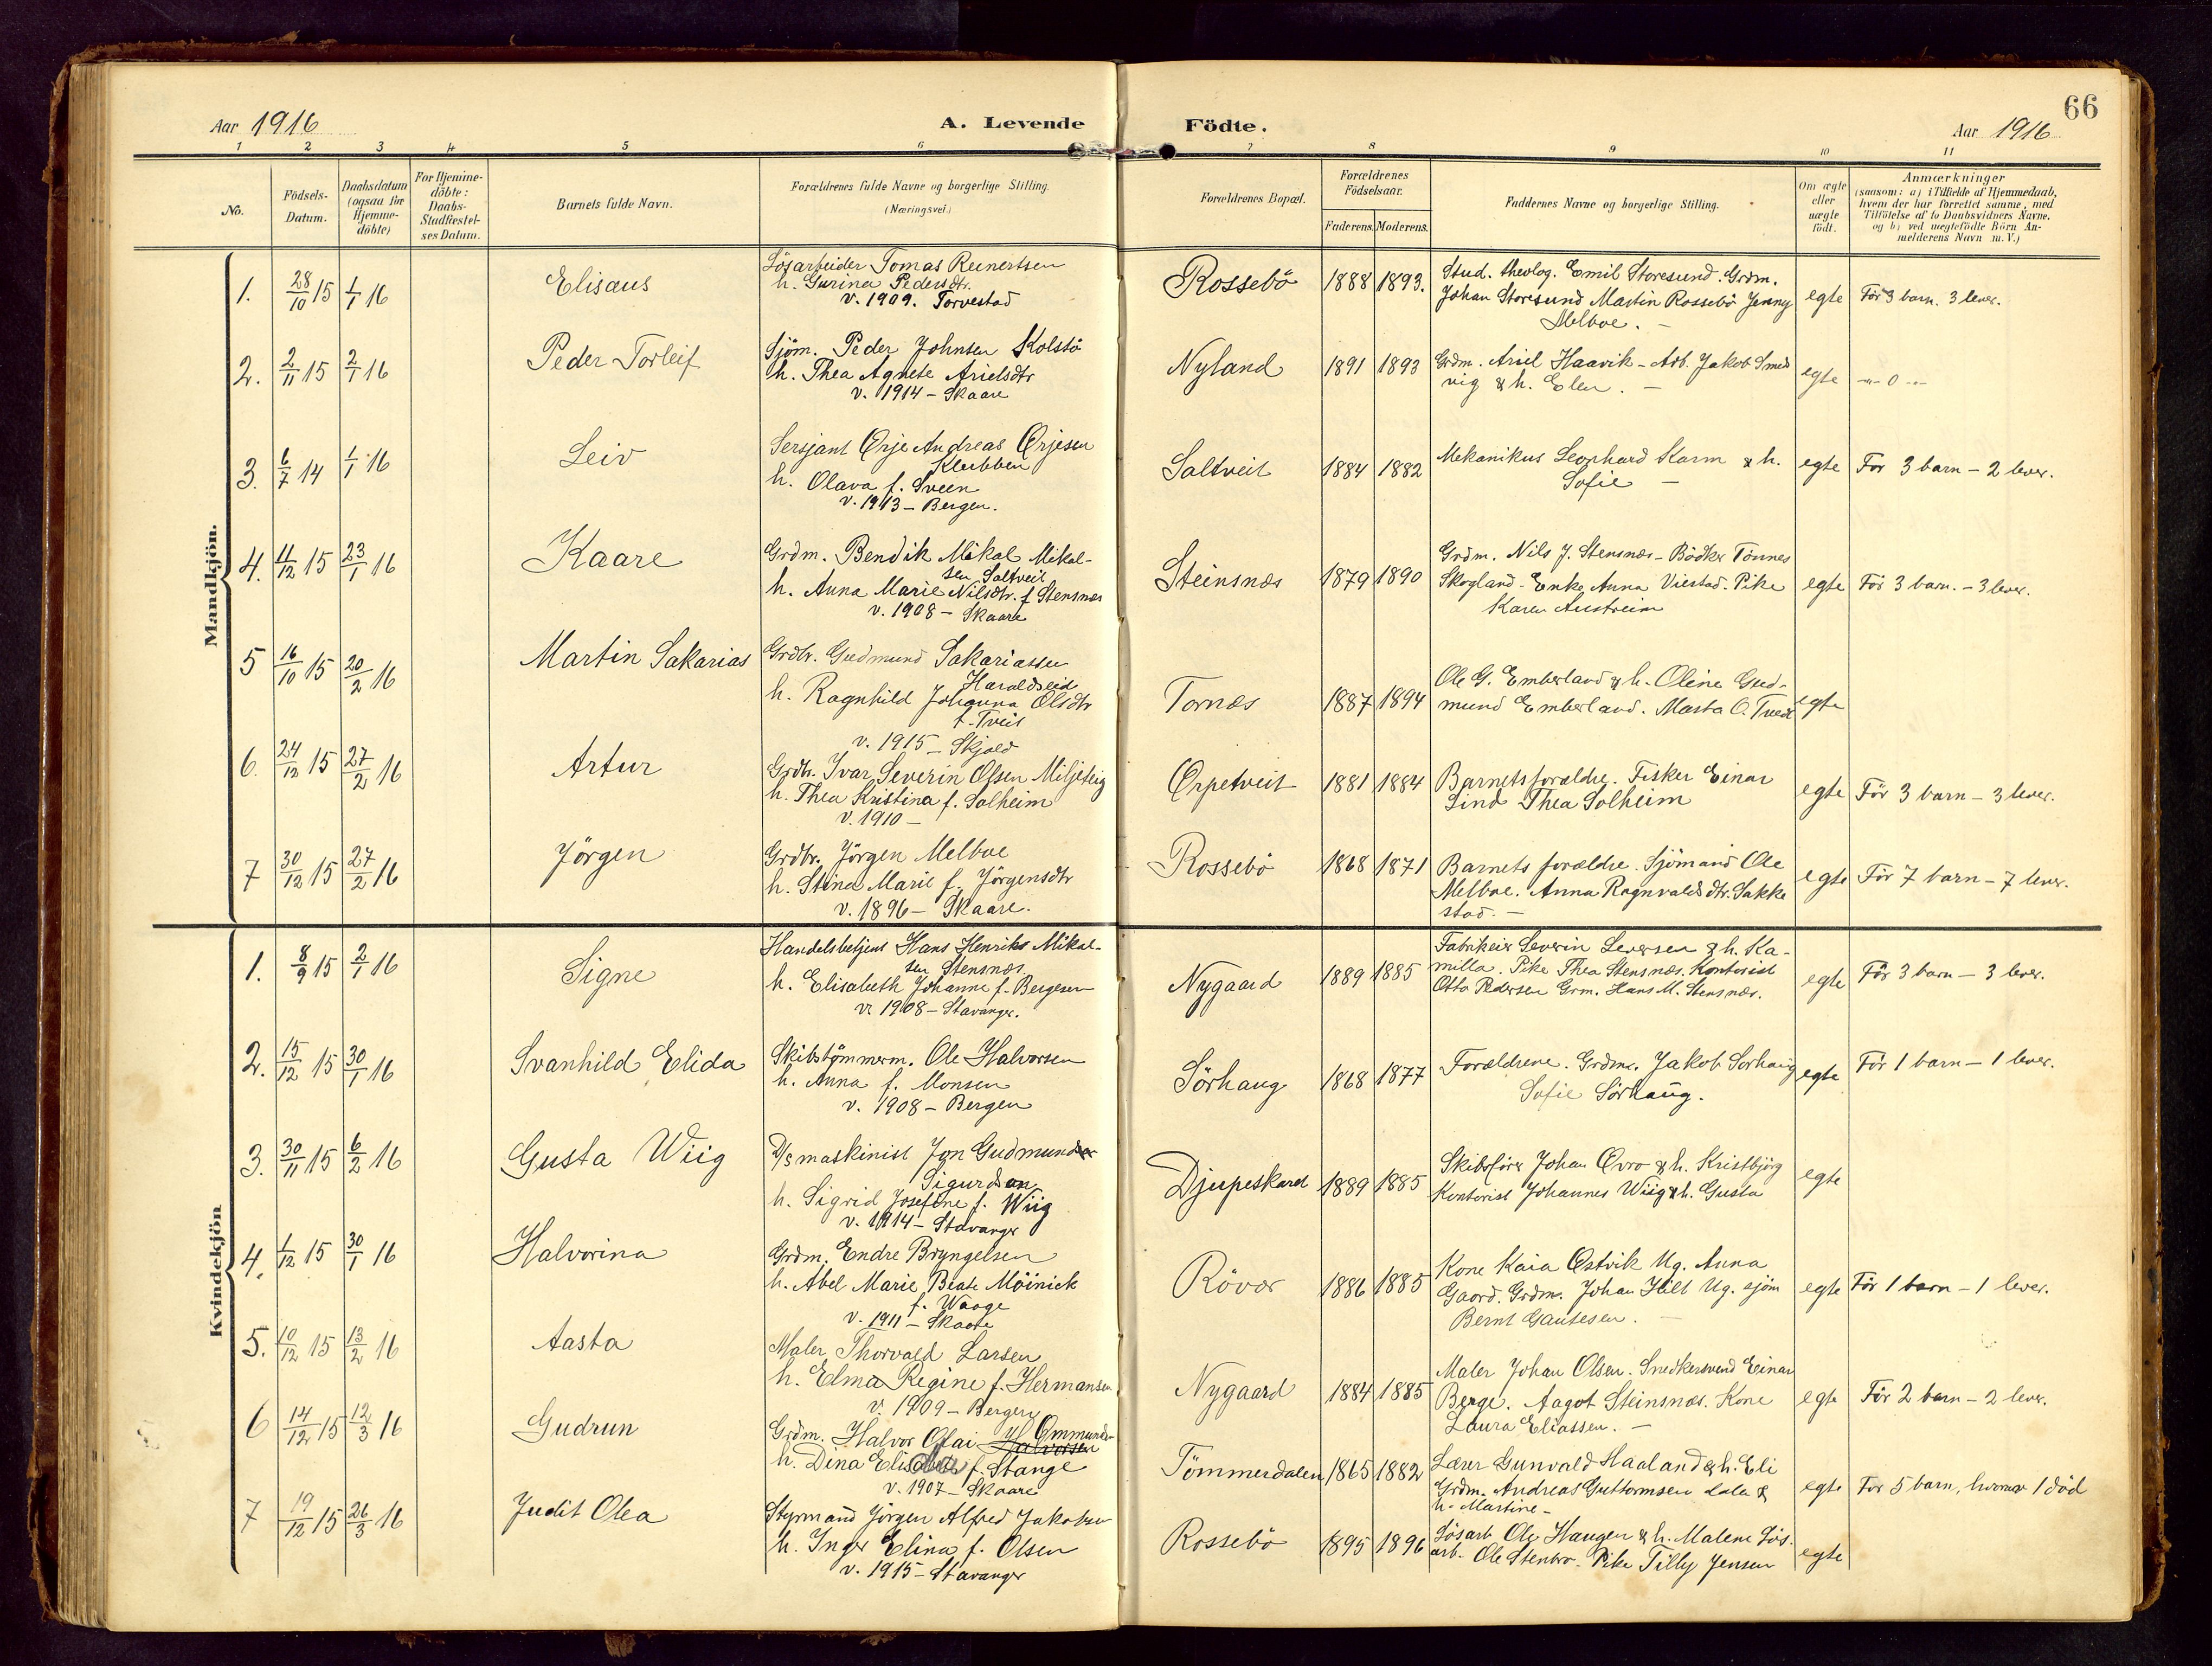 66
Aar 1916
A. Levende Födte.
Aar 1916
1 2 3 4 5 6 7 8 9 10 11
No.
Födsels-
Datum.
Daabsdatum
(ogsaa for
Hjemme-
döbte)
For Hjemme-
döbte:
Daabs-
Stadfæstel-
ses Datum.
Barnets fulde Navn.
Forældrenes fulde Navne og borgerlige Stilling.
(Næringsvei.)
Forældrenes Bopæl.
Forældrenes
Födselsaar.
Faderens. Moderens.
Faddernes Navne og borgerlige Stilling.
Om ægte
eller
uægte
födt.
Anmærkninger
(saasom: a) i Tilfælde af Hjemmedaab,
hvem der har forrettet samme, med
Tilföielse af to Daabsvidners Navne,
og b) ved uægtefödte Börn An-
melderens Navn m. V.)
Mandkjön.
1. 28/10 15 1/1 16 Elisæus
Lösarbeider Tomas Reinertsen
h. Gurina Pedersdtr.
v. 1909. Torvestad
Rossebö 1888 1893.
Stud. theolog. Emil Storesund. Grdm.
Johan Storesund Martin Rossebö Jenny
Melboe. –
egte För 3 barn. 3 lever.
2. 2/11 15 2/1 16 Peder Torleif
Sjöm. Peder Johnsen Kolstö
h. Thea Agnete Arielsdtr
v. 1914 – Skaare
Nyland 1891 1893
Grdm. Ariel Haavik – Arb. Jakob Smed
vig & h. Elen. –
egte –"– 0 –"–
3. 6/7 14 1/1 16 Leiv
Sersjant Ørje Andreas Ørjesen
Klubben
h. Olava f. Sveen
v. 1913 – Bergen.
Saltveit 1884 1882
Mekanikus Leonhard Karm & h.
Sofie –
egte For 3 barn – 2 lever.
4. 11/12 15 23/1 16 Kaare
Grdm. Bendik Mikal Mikal-
sen Saltveit
h. Anna Marie Nilsdtr. f Stensnæs
v. 1908 – Skaare
Steinsnæs 1879 1890
Grdm. Nils J. Stensnæs – Bödker Tönnes
Skogland – Enke Anna Viestad. Pike
Karen Austreim
egte För 3 barn. – 3 lever.
5 16/10 15 20/2 16 Martin Sakarias
Grdbr. Gudmund Sakariassen
Haraldseid
h. Ragnhild Johanna Olsdtr
f. Tveit
v. 1915 – Skjold
Tornæs 1887 1894
Ole G. Emberland & h. Oline Gud-
mund Emberland. Marta O. Tveit
egte
6. 24/12 15 27/2 16 Artur
Grdbr. Ivar Severin Olsen Miljeteig
h. Thea Kristina f. Solheim
v. 1910 –
Ørpetveit 1881 1884
Barnets forældre. Fisker Einar
Lind Thea Solheim
egte För 3 barn – 3 lever.
7 30/12 15 27/2 16 Jörgen
Grdbr. Jörgen Melboe
h. Stina Marie f. Jörgensdtr
v. 1896 – Skaare.
Rossebö 1868 1871
Barnets forældre. Sjömand Ole
Melboe. Anna Ragnvaldsdtr. Sakke
stad. –
egte För 7 barn – 7 lever.
Kvindekjön
1. 8/9 15 2/1 16 Signe
Handelsbetjent Hans Henriks Mikal-
sen Stensnæs.
h. Elisabeth Johanne f. Bergesen
v. 1908 – Stavanger.
Nygaard 1889 1885
Fabrikeier Severin Seversen & h. Ka-
milla. Pike Thea Stensnæs. Kontorist
Otto Pedersen Grm. Hans M. Stensnæs.
egte För 3 barn – 3 lever.
2. 15/12 15 30/1 16 Svanhild Elida
Skibstömmerm. Ole Halvorsen
h. Anna f. Monsen
v. 1908 – Bergen
Sörhaug 1868 1877
Forældrene. Grdmr. Jakob Sorhaug
Sofie Sörhaug.
egte För 1 barn – 1 lever.
3. 30/11 15 6/2 16 Gusta Wiig
D/s maskinist Jon Gudmund
Sigurdson
h. Sigrid Josefine f. Wiig
v. 1914 – Stavanger
Djupeskard 1889 1885
Skibsförer Johan Øvro & h. Kristbjörg
Kontorist Johannes Wiig & h. Gusta
egte
4. 1/12 15 30/1 16 Halvorina
Grdm. Endre Bryngelsen
h. Abel Marie Beate Möinick
f. Waage
v. 1911 – Skaare
Rövær 1886 1885
Kone Kaia Østvik Ug. Anna
Gaard. Grdm. Johan Hilt Ug. sjöm
Bernt Gautesen. –
egte För 1 barn – 1 lever.
5. 10/12 15 13/2 16 Aasta
Maler Thorvald Larsen
h. Elma Regine f. Hermansen
v. 1909 – Bergen
Nygaard 1884 1885
Maler Johan Olsen. Snedkersvend Einar
Berge. Aagot Steinsnæs. Kone
Laura Eliassen. –
egte För 2 barn – 2 lever.
6 14/12 15 12/3 16 Gudrun
Grdm. Halvor Olai Halvorsen Ommunds-
h. Dina f. Stange
v. 1907 – Skaare
Tömmerdalen 1865 1882
Lærer Gunvald Haaland & h. Eli
Grdm. Andreas Guttormsen &
h. Martine –
egte For 5 barn, hvorav 1 död
7 19/12 15 26/3 16 Judit Olea
Styrmand Jörgen Alfred Jakobsen
h. Inger Elina f. Olsen
v. 1915 – Stavanger
Rossebö 1895 1896
Lösarb Ole Haugen & h. Malene Lös.
arb. Ole Stenbro. Pike Tilly Jensen
egte